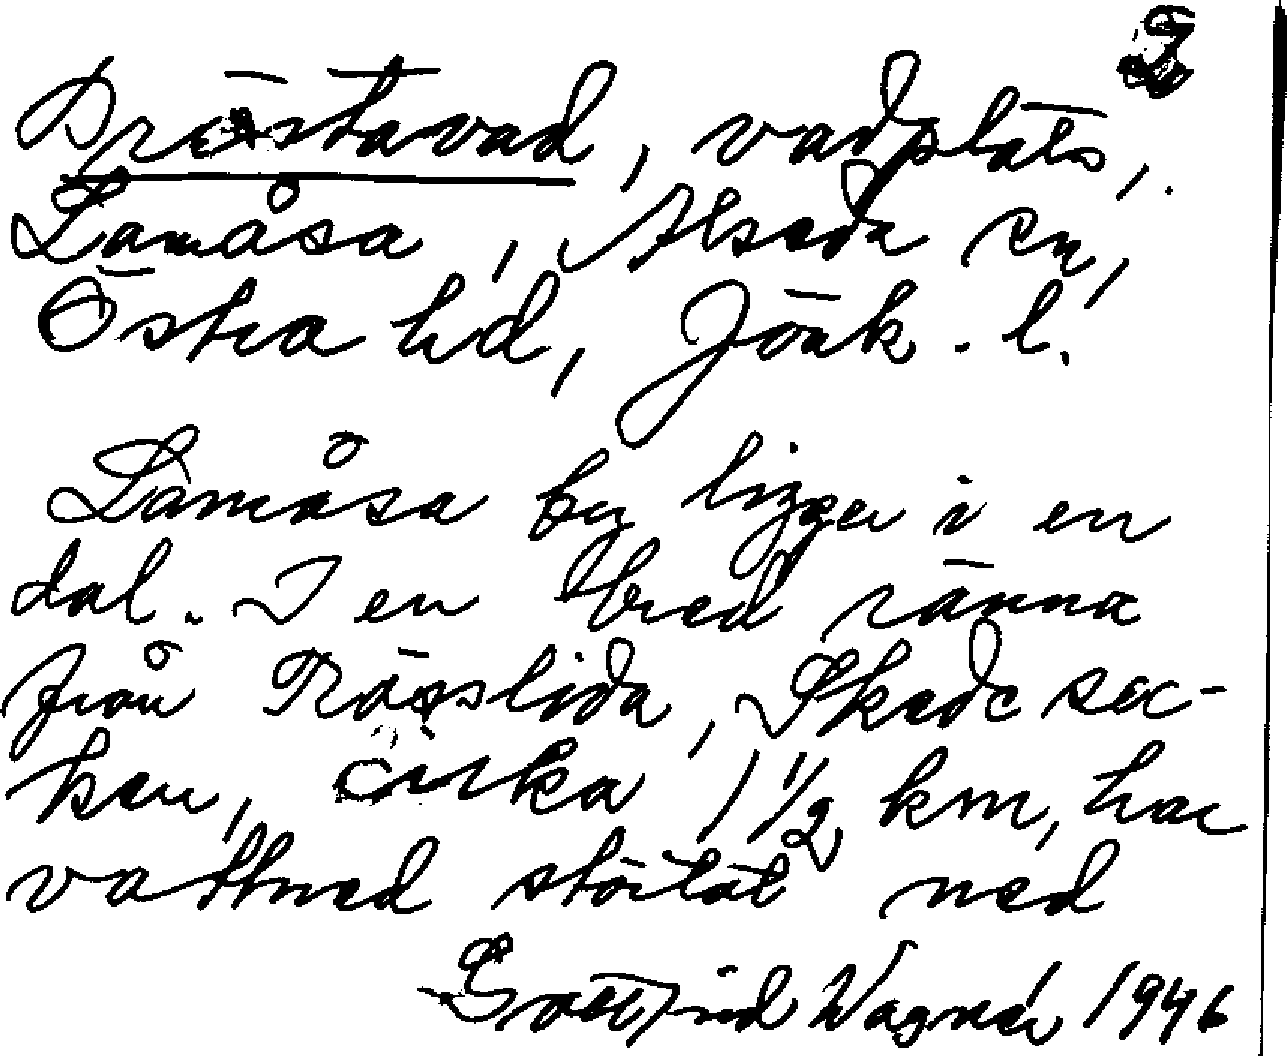 2
Prästavad, vadplats,
Lamåsa, Alseda sn,
Östra hd, Jönk. l.
Lamåsa by ligger i en
dal. I en bred ränna
från Rösslida, Skede soc-
ken, cirka 1 1/2 km, har
vattned störtat ned
Gottfrid Wagnér 1946